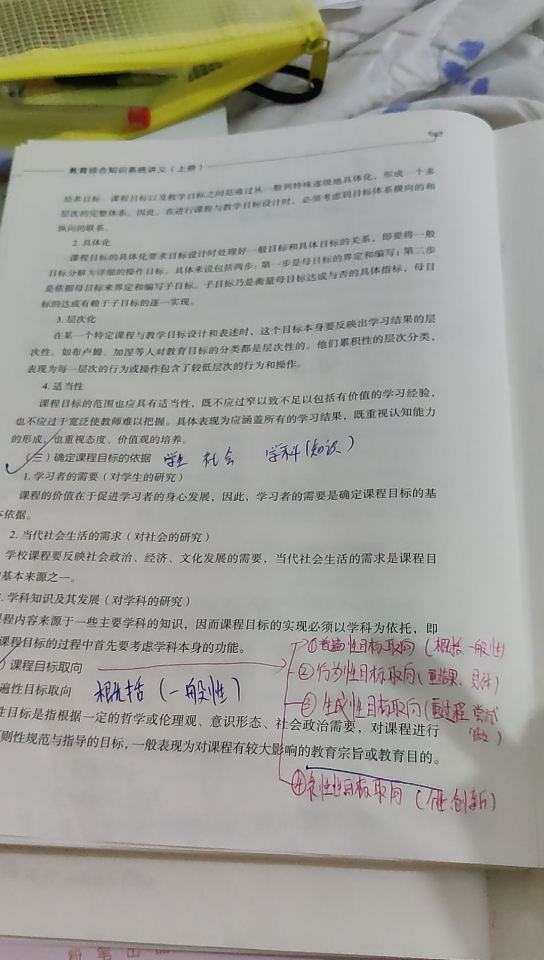 教育综合知识系统讲义（上册）
培养目标、课程目标以及教学目标之间是通过从一般到特殊逐级地具体化，形成一个多
层次的完整体系。因此，在进行课程与教学目标设计时，必须考虑到目标体系横向的和
纵向的联系。
2. 具体化
课程目标的具体化要求目标设计时处理好一般目标和具体目标的关系，即要将一般
目标分解为详细的操作目标。具体来说包括两步：第一步是母目标的界定和编写；第二步
是依据母目标来界定和编写子目标。子目标乃是衡量母目标达成与否的具体指标，母目
标的达成有赖于子目标的逐一实现。
3. 层次化
在某一个特定课程与教学目标设计和表述时，这个目标本身要反映出学习结果的层
次性。如布卢姆、加涅等人对教育目标的分类都是层次性的。他们累积性的层次分类，
表现为每一层次的行为或操作包含了较低层次的行为和操作。
4. 适当性
课程目标的范围也应具有适当性，既不应过窄以致不足以包括有价值的学习经验，
也不应过于宽泛使教师难以把握。具体表现为应涵盖所有的学习结果，既重视认知能力
的形成，也重视态度、价值观的培养。
（三）确定课程目标的依据 学生 社会 学科（知识）
1. 学习者的需要（对学生的研究）
课程的价值在于促进学习者的身心发展，因此，学习者的需要是确定课程目标的基
本依据。
2. 当代社会生活的需求（对社会的研究）
学校课程要反映社会政治、经济、文化发展的需要，当代社会生活的需求是课程目
基本来源之一。
学科知识及其发展（对学科的研究）
程内容来源于一些主要学科的知识，因而课程目标的实现必须以学科为依托，即
课程目标的过程中首先要考虑学科本身的功能。
①普遍性目标取向（概括 一般性）
）课程目标取向
②行为性目标取向（重结果、具体）
遍性目标取向 概括（一般性）
③生成性目标取向（重过程 尝试
做）
性目标是指根据一定的哲学或伦理观、意识形态、社会政治需要，对课程进行
则性规范与指导的目标，一般表现为对课程有较大影响的教育宗旨或教育目的。
④表性性目标取向（ 创新）
粉笔出